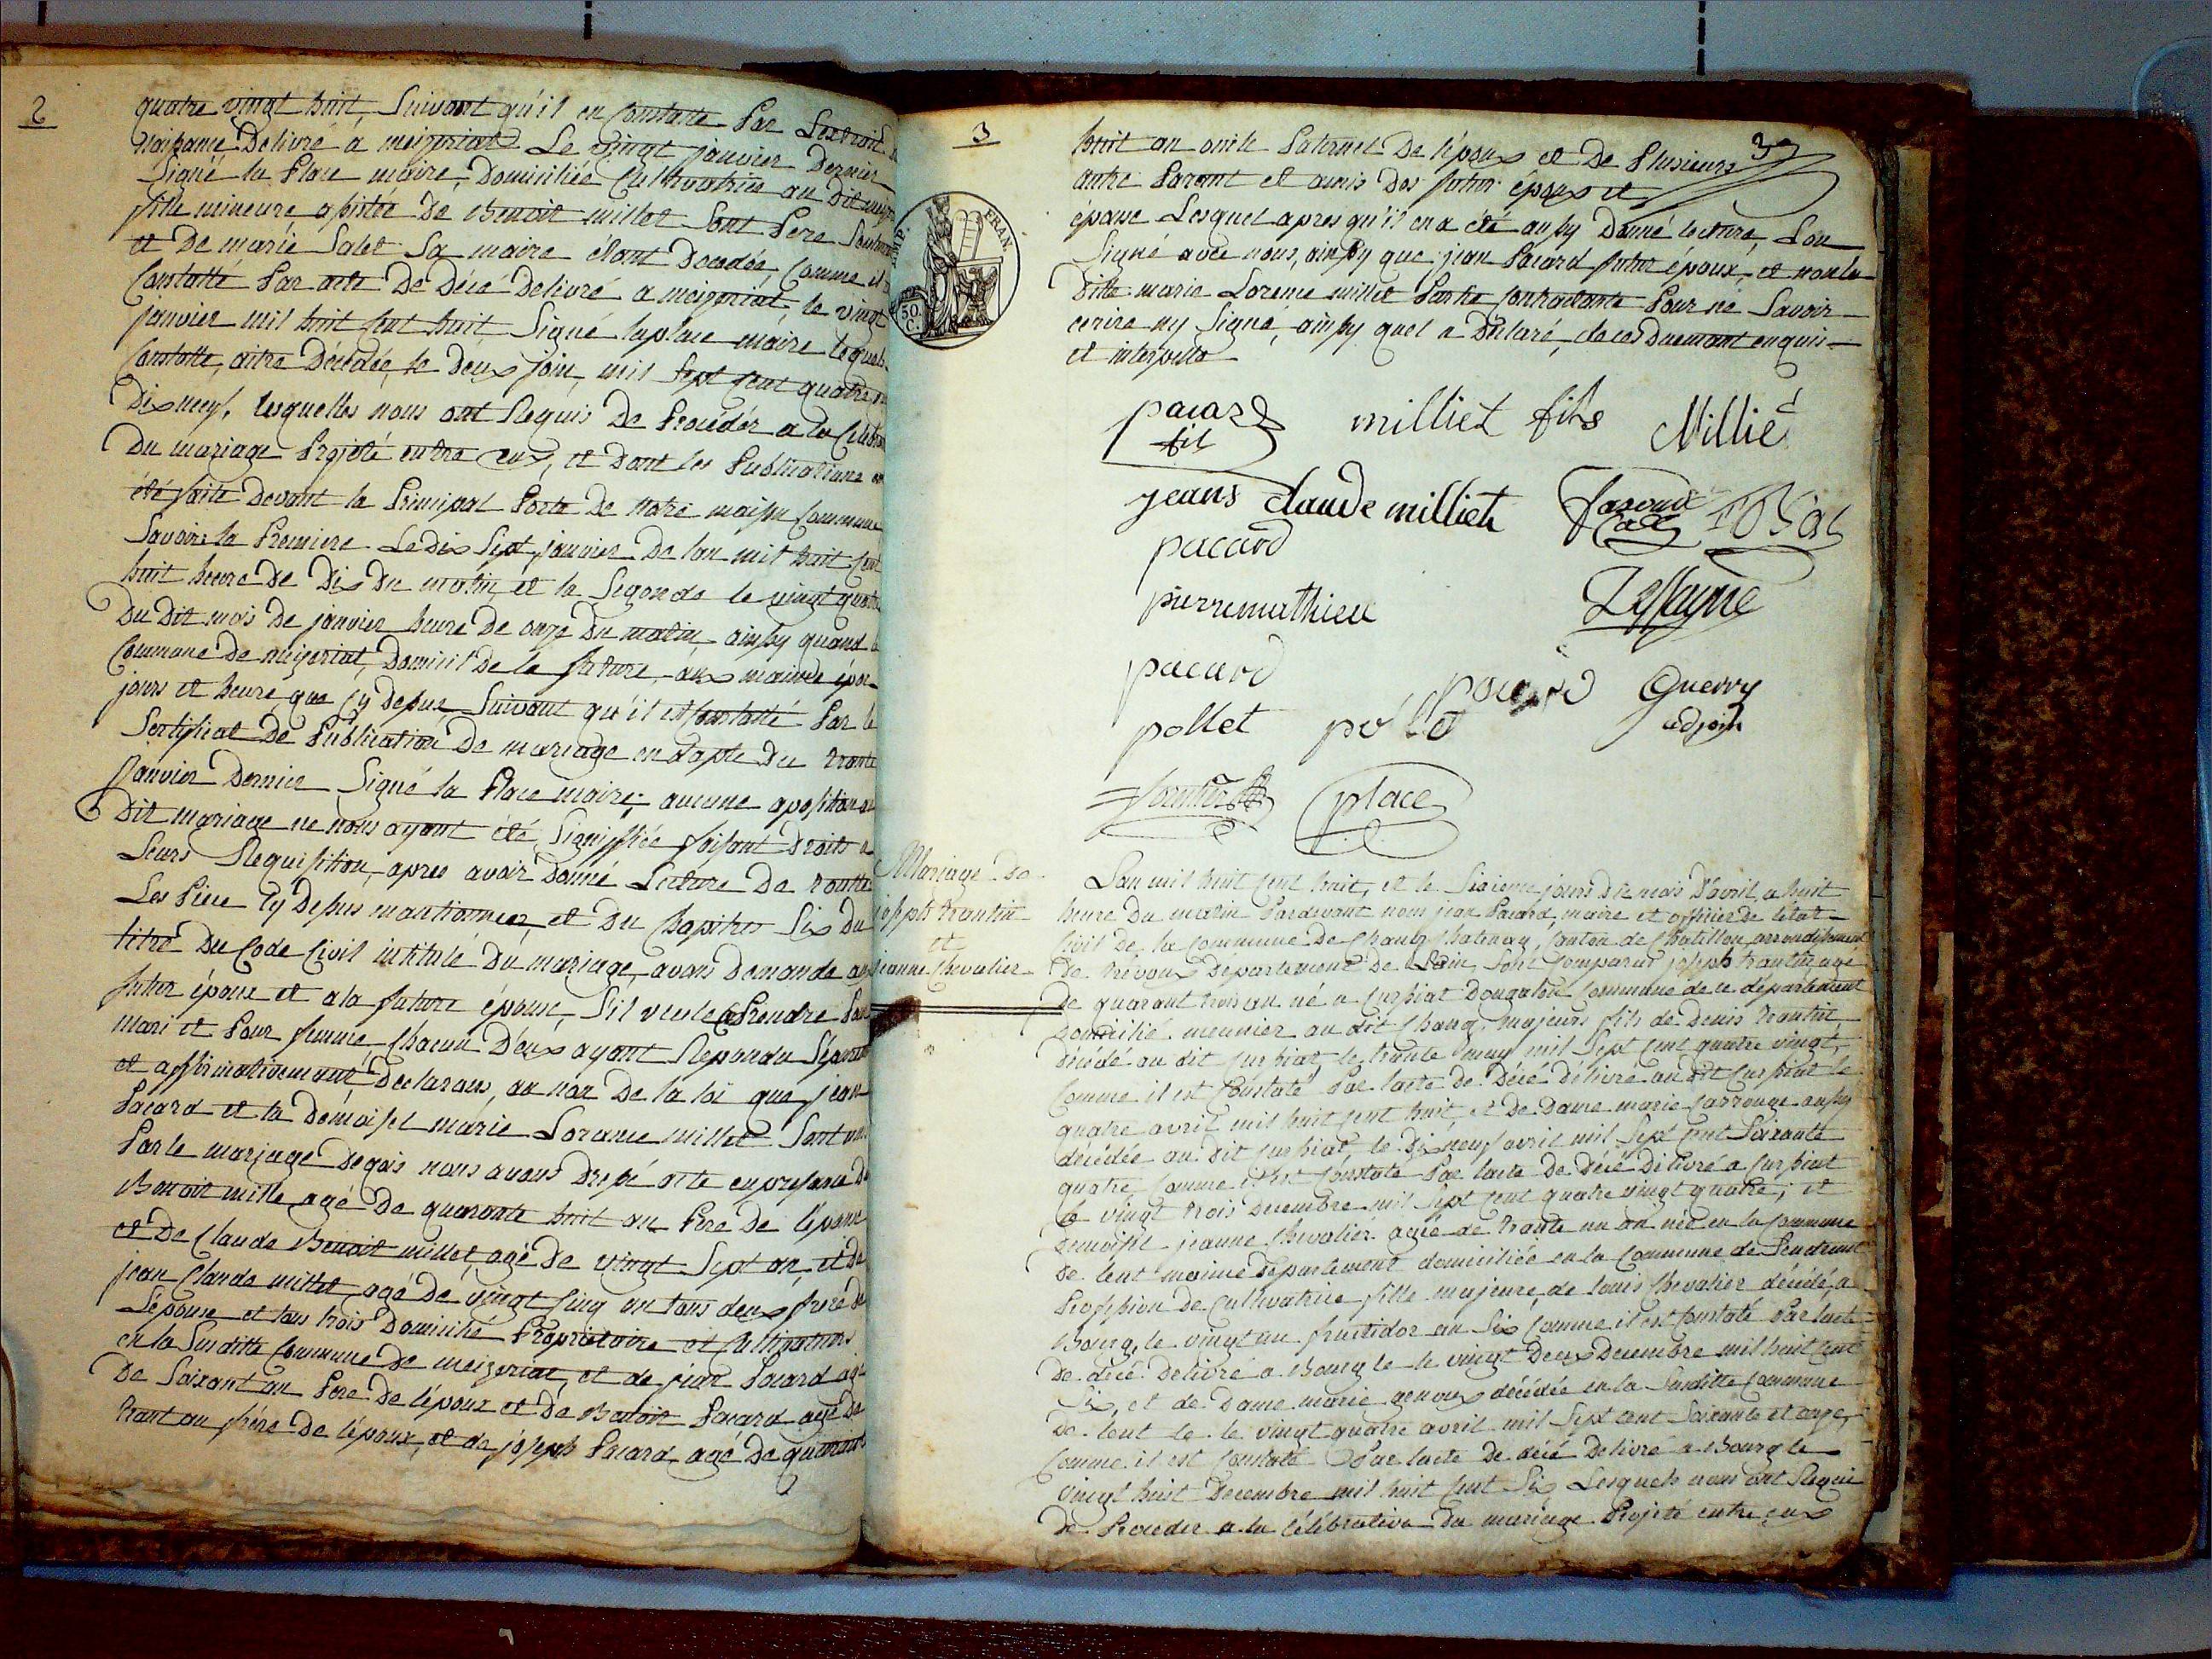 2
quatre vingt huit, Suivant qu'il en Constatte Par Lextrait
naissance Delivré a meizeriat Le vingt janvier Dernier
Signé la Place maire, Domiciliée Cultivatrice au Dit
fille mineure assistée De Benoit millet Sont Pere
et De marie Salet Sa maire étant Decedée, Comme il
Constatté Par acte De Décé Delivré a meizeriat, le vingt
janvier mil huit Cent huit, Signé laplace maire lequel
Constatte, aitre Décédée, le deux join, mil Sept Cent quatre
Dix neuf, lesquelles nous ont Requis De Procédér a la
Du mariage Projeté entre eux, et Dont les Publications
été faite Devant la Principal Porte De Notre maison Commune
Savoir la Premiere Le Dix Sept janvier De lan mil huit Cent
huit heure De Dix Du matin, et la Segonde le vingt quatre
Du Dit mois De janvier heure De onze Du matin, ainsy quand
Commune De meizeriat, Domicil De la future, aux maimde
jours et heure que Cy Depue Suivant qu'il est Constatté Par le
Sertificat De Publication De mariage en Dapte Du trante
janvier Dernier Signé la Place maire; aucune aposition au
Dit mariage ne nous ayant été Signiffiée faisant Droits a
Leurs Requisition, apres avoir Donné Lecture De toutte
Les Piéce Cy Dessus mantionnées, et Du Chapitre Six Du
titre Du Code Civil intitulé Du mariage, avons Demande au
futur époux et a la future épouse, S'il veule Prendre Pour
mari et Pour femme, Chacun D'eux ayant Repondu
et affirmativement, Declarons, au non De la loi que jean
Pacard et la Démoisel marie Lorance millet Sont
Par le mariage Dequois nous avons Dressé acte en presance De
Benoit mille, agé De quarante huit an Pere De l'épouse
et De Claude Benoit millet, agé De vingt Sept an, et De
jean Claude millet, agé De vingt Cinq an tous deux frere De
Lépouse et tous trois Domicilié Propriétaire et Cultivateurs
en la Susditte Commune De meizeriat, et de jean Pacard
De Soixant an Pere De lépoux et De Benoit Pacard agé De
trant an frére De lépoux, et de joseph Pacard agé De quarante
3
37
huit an oncle Paternel De l'époux et De Plusieurs
autre Parant et amis Des futur époux et
épouse Lesquel apres qu'il en a été aussy Donné lecture, Lon
Signé avec nous, ainsy que jean Pacard futur époux, et non la
Ditte marie Lorence millet Partie Contractante Pour ne Savoir
ecrire ny Signé, ainsy quel a Déclaré, de ces Duemant enquis
et interpellé
TIMP. FRAN.
50 C.
pacard
fil
milliet fils
Millié
jeans Claude milliet
pacard
pierre mathieu
pacard
pacard
Guerry
adjoin
pollet
pollet
place
Mariage de
joseph trantin
et
jeanne Chevalier
Lan mil huit Cent huit, et le Sixieme jours Du mois D'avril, a huit
heure Du matin Pardevant nous jean Pacard, maire et officier De létat
Civil De la Commune De Chanoz Chatenay, Canton de Chatillon, arrondissement
De trévoux Departement De Lain, Sont Comparus joseph trantin agé
De quarant trois an né a Cursiat Dongalon Commune de ce département
Domicilié meunier au dit Chanoz, majeurs fils de Denis trantin
Décédé au dit Cursiat, le trante may mil Sept Cent quatre vingt,
Comme il est Constaté Par lacte De Décé délivré au dit Cursiat le
quatre avril mil huit Cent huit, et De Dame marie Carrouge aussy
décédée au dit Cursiat le Dix neuf avril mil Sept Cent Soixante
quatre Comme il est Constate Par lacte De Décé Délivré a Cursiat
le vingt trois Decembre mil Sept Cent quatre vingt quatre; et
Demoisel jeanne Chevalier agée de trante un an née en la Commune
De lent maime Departement domiciliée en la Commune de
Proffession De Cultivatrice fille majeure, de louis Chevalier décédé, a
Bourg, le vingt un fructidor an Six Comme il est Constaté Par lacte
De décé Delivré a Bourg le le vingt Deux Decembre mil huit Cent
Six, et de Dame marie genoux décédée en la Susditte Commune
De lent le le vingt quatre avril mil Sept Cent Soixante et onze,
Comme il est Constaté Par lacte De décé Delivré a Bourg le
vingt huit Decembre mil huit Cent Six Lesquels nous ont Requis
De Proceder a la Célébration Du mariage Projeté entre eux